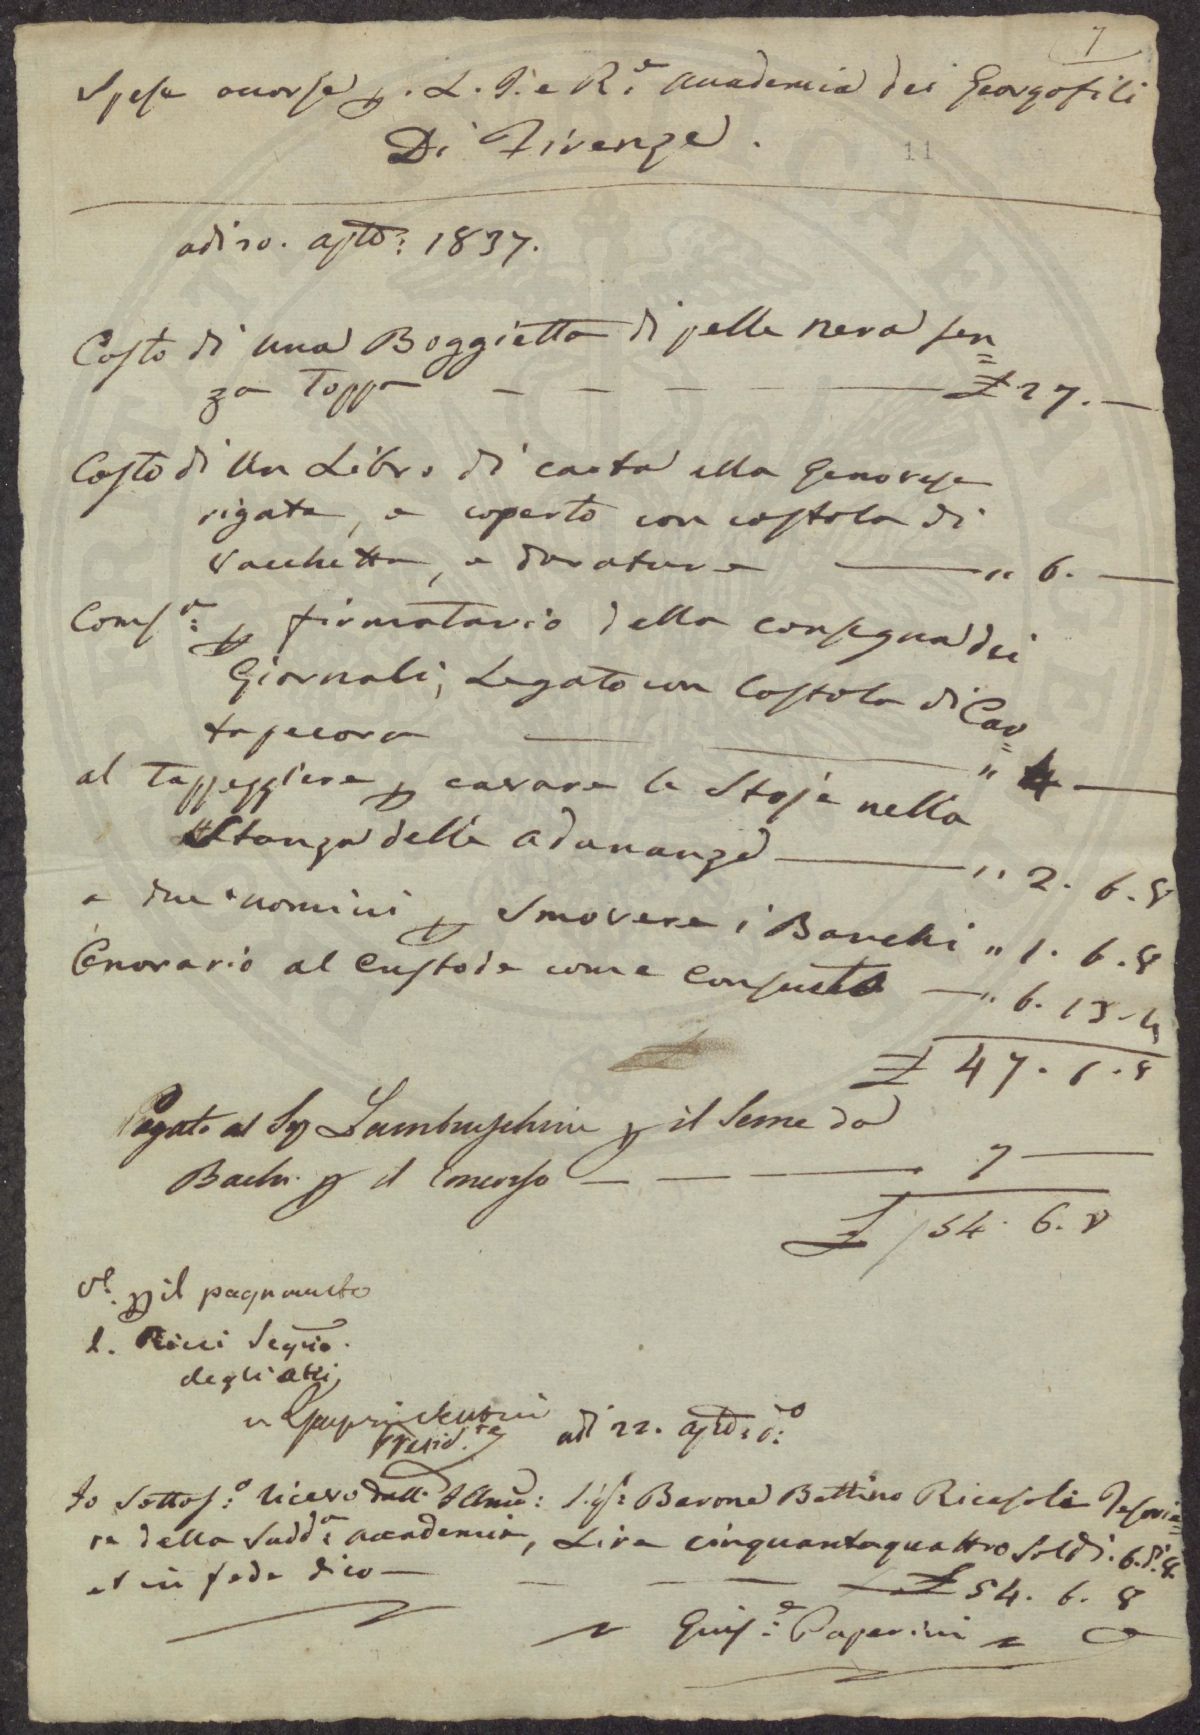 7
Spese occorse p. L. I. e R.e Accademia dei Georgofili
Di Firenze.
11
adi 20. Agto: 1837.
Costo di una Boggietta di pelle nera sen=
za Toppa — — — — £ 27. —
Costo di Un Libro di carta alla Genovese
rigata, e coperto con costola di
Vacchetta, e dorature — " 6. —
Comp.a: p firmatario della consegna dei
Giornali, Legato con Costola di Car=
tapecora — — " 4 —
al Tappezziere p cavare le Stoje nella
Stanza delle adunanze — " 2. 6. 8
a due uomini p Smovere i Banchi " 1. 6. 8
Onorario al Custode come Consueto — " 6. 13. 4
£ 47. 6. 8
Pagato al Sig Lambruschini p il Seme da
Bachi p il Concorso — — — 7 —
£ 54. 6. 8
Vo. p il pagamento
L. Ricci Segrio.
degli Atti
Presid.te
adi 22. Agto: do:
Io Sottos:o ricevo dall' Illmo: Sig: Barone Bettino Ricasoli Tesorie=
re della Sudd:a Accademia, Lire cinquantaquattro Soldi. 6. d. 8.
et in fede dico — — — £ 54. 6. 8
Gius:e Paperini